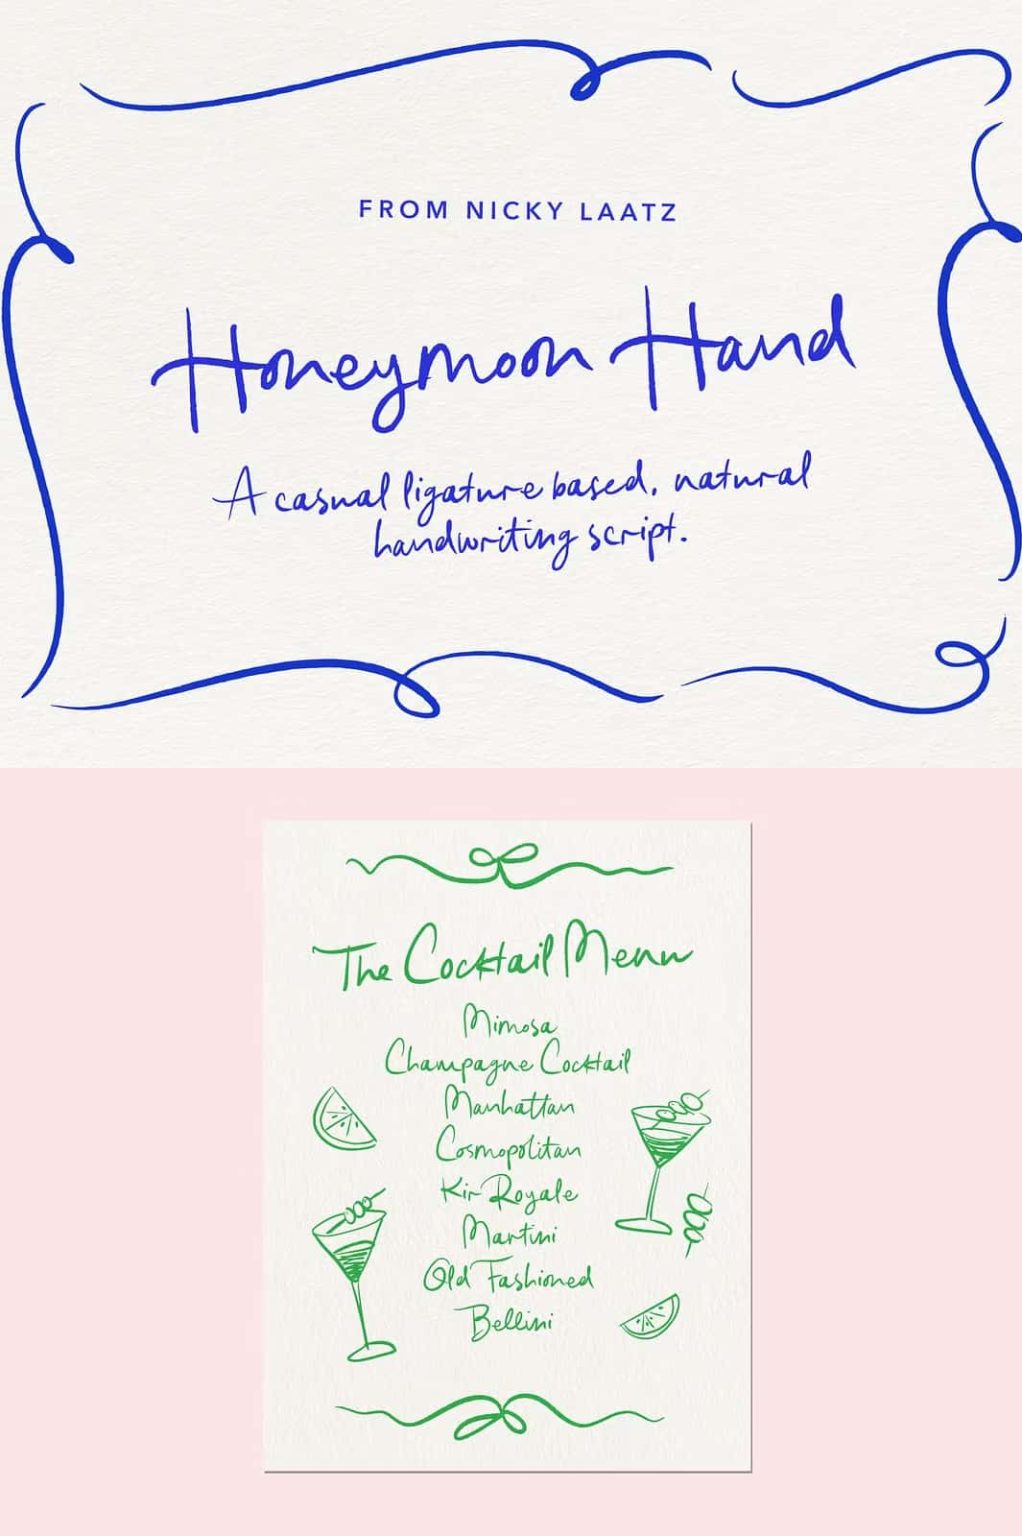 FROM NICKY LAATZ
Honeymoon Hand
A casual ligature based, natural
handwriting script.
The Cocktail Menu
Mimosa
Champagne Cocktail
Manhattan
Cosmopolitan
Kir Royale
Martini
Old Fashioned
Bellini